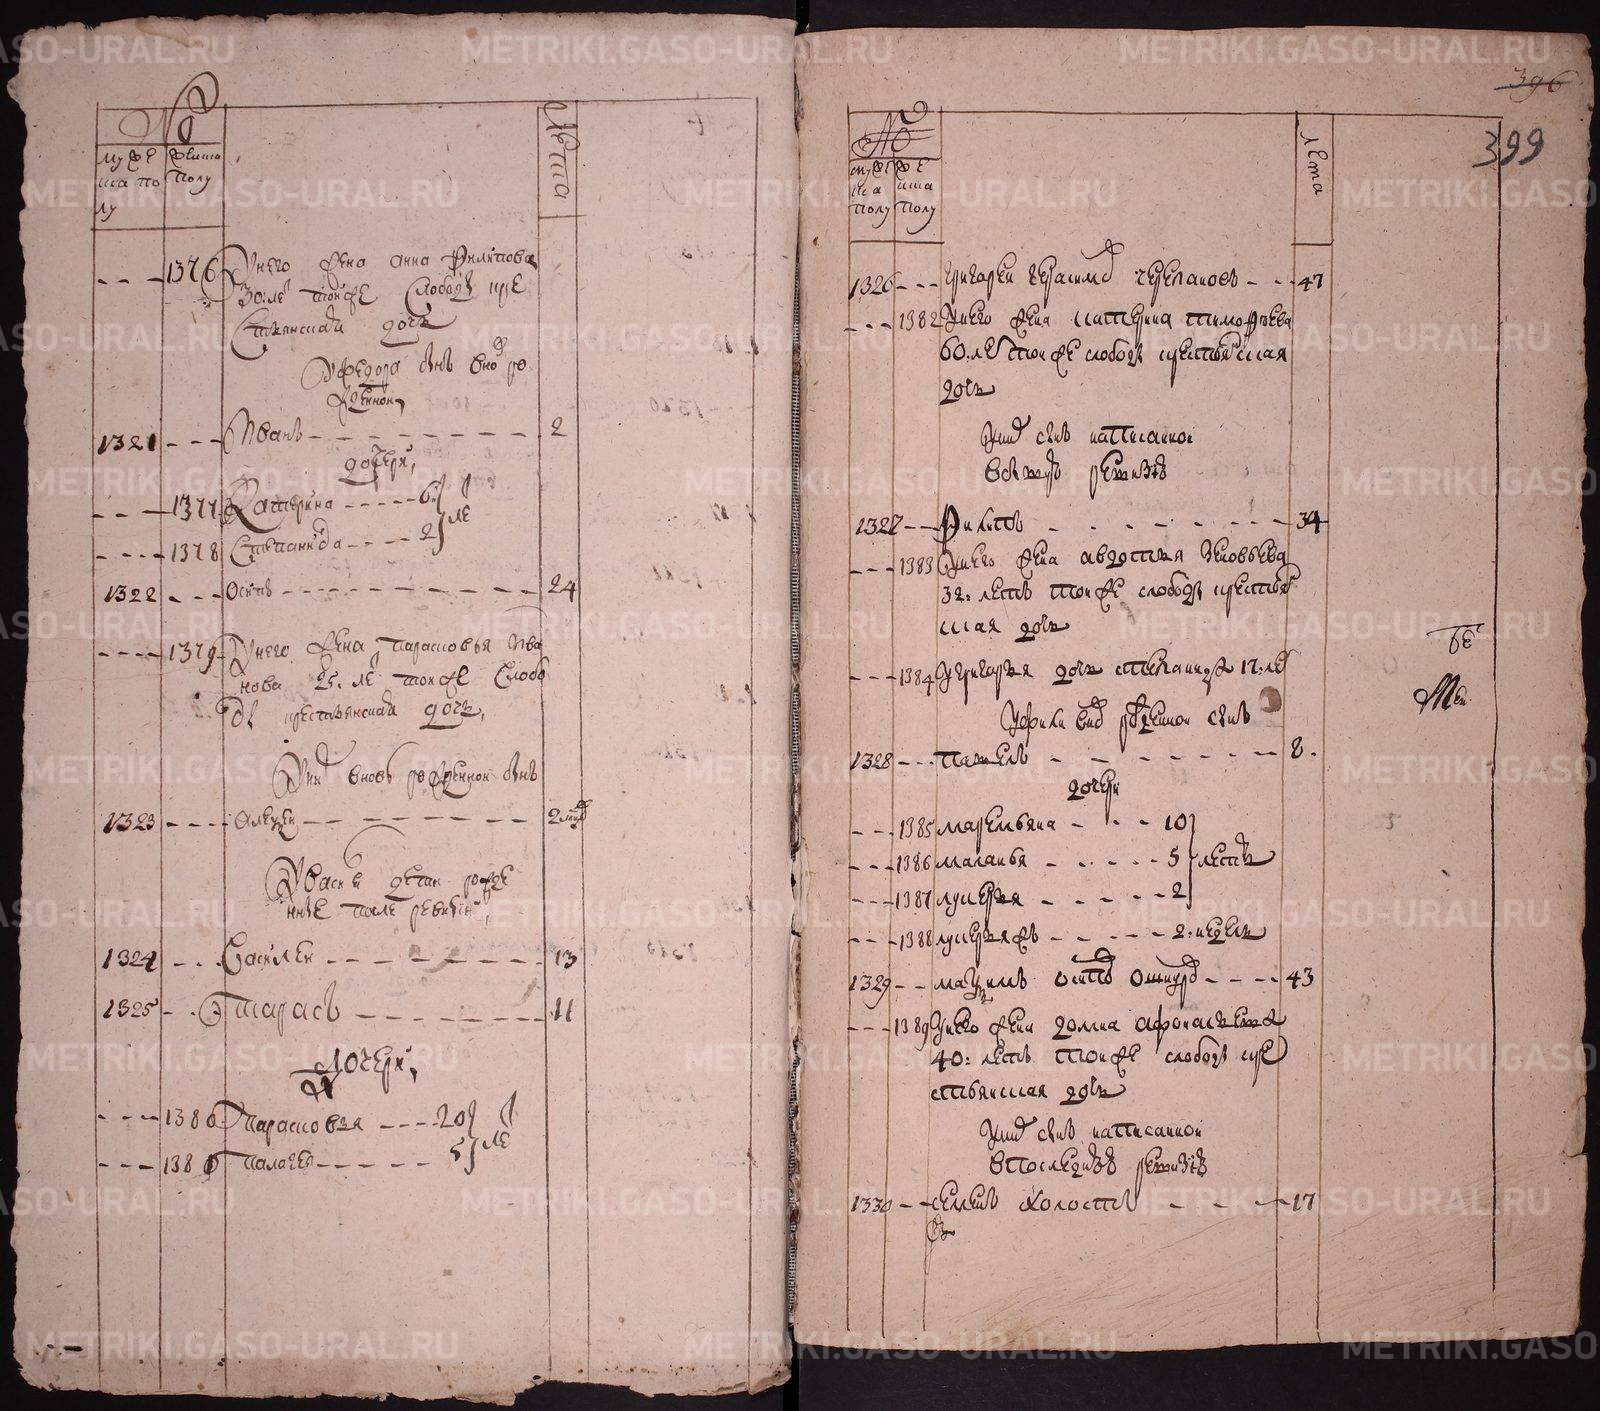 №
мужеска полу
женска полу
лета
1376 У него жена анна филипова
30: ле той же слободы кре
стьянская дочь
У федора сынъ вно ро
жденной
1321 Иванъ 2
дочери
1377 Катерина 6
1378 Степанида 2 ле
1322 Осипъ 24
1379 У него жена парасковья Ива
нова 25. ле той же слобо
ды крестьянская дочь
У ни вновь рожденной сынъ
1323 Алекѣй 2
У Васи дети рожде
нные после ревизии
1324 Василей 13
1325 тарасъ 11
Дочери
1380 Парасковья 20
1381 палагея 5 ле
396
399
№
мужеска полу
женска полу
лета
1326 Григорей герасимо черепановъ 47
1382 У него жена катерина тимофеева
60. ле той же слободы крестьянская
дочь
У ни сынъ написанной
в ревизиѣ
1327 Филипъ 34
1383 У него жена авдотья Зиновьева
32: летъ той же слободы крестья
нская дочь
1384 У григорья дочь степанида 17: ле
У фили вно рожденной сынъ
1328 павелъ 8
дочери
1385 маремьяна 10
1386 маланья 5 летъ
1387 лукерья 2
1388 лукерья жъ 2: недели
1329 максимъ осипо 43
1389 У него жена домна афонасьева
40: летъ той же слободы кре
стьянская дочь
У ни сынъ написанной
в последней ревизиѣ
1330 семенъ холостъ 17